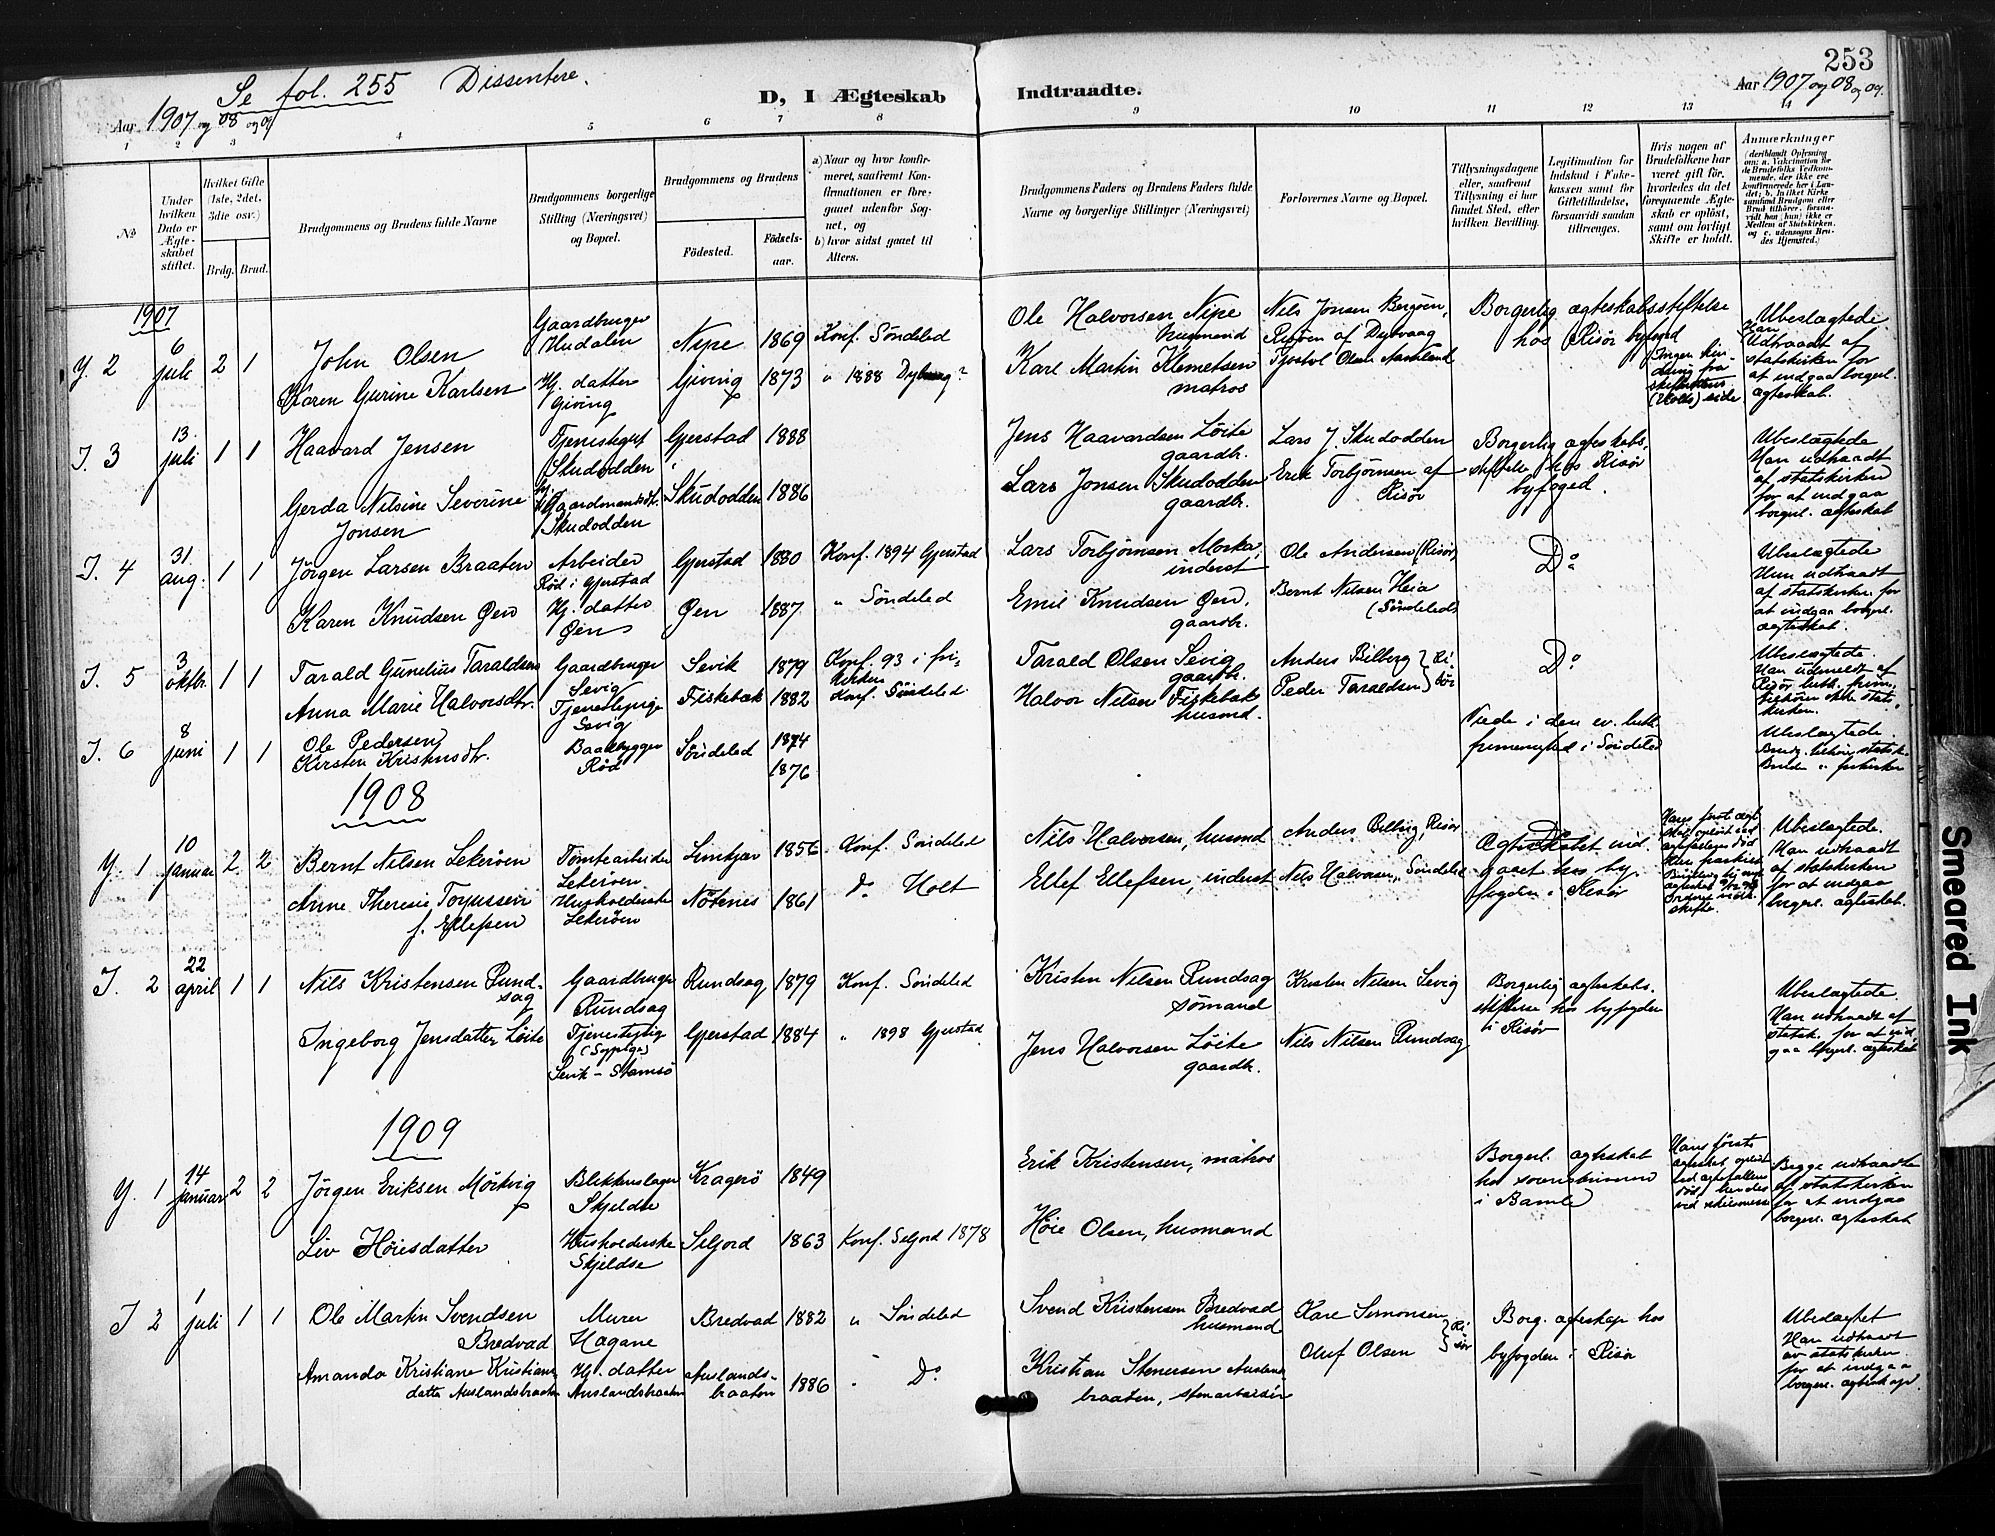 Se fol. 255 Dissentere.
253
Aar 1907 og 08 og 09
D, I Ægteskab Indtraadte.
Aar 1907 og 08 og 09.
1 2 3 4 5 6 7 8 9 10 11 12 13 14
No
Under hvilken Dato er Ægteskabet stiftet.
Hvilket Gifte (1ste, 2det, 3die osv.)
Brdg. Brud.
Brudgommens og Brudens fulde Navne
Brudgommens borgerlige Stilling (Næringsvei) og Bopæl.
Brudgommens og Brudens
Fødested.
Fødselsaar.
a) Naar og hvor konfirmeret, saafremt Konfirmationen er foregaaet udenfor Sognet, og
b) hvor sidst gaaet til Alters.
Brudgommens Faders og Brudens Faders fulde Navne og borgerlige Stillinger (Næringsvei)
Forlovernes Navne og Bopæl.
Tillysningsdagene eller, saafremt Tillysning ei har fundet Sted, efter hvilken Bevilling.
Legitimation for Indskud i Enkekassen samt for Giftetilladelse, forsaavidt saadan tiltrænges.
Hvis nogen af Brudefolkene har været gift før, hvorledes da det foregaaende Ægteskab er opløst, samt om lovligt Skifte er holdt.
Anmerkninger
1907
Y. 2
6 juli
2 1
John Olsen
Gaardbruger Hudalen
Nipe
1869
Konf. Söndeled
Ole Halvorsen Nipe husmand
Nils Jensen
Borgerlig ægteskabsstiftelse hos Risør byfoged
Ubeslægtede Han Udtraadt af statskirken for at indgaa borgerl. ægteskab.
Karen Gurine Karlsen
Hj. datter Giving
Giving
1873
" 1888
Karl Martin Klemetsen matros
J. 3
13. juli
1 1
Haavard Jensen
Tjenestegut Skudodden
Gjerstad
1888
Jens Haavardsen Löite gaardbr.
Lars J. Skudodden
Borgerlig ægteskabsstiftelse hos Risør byfoged.
Ubeslægtede Han udtraadt af statskirken for at indgaa borgerl. ægteskab
Gerda Nilsine Severine Jonsen
Skudodden
Skudodden
1886
Lars Jonsen Skudodden gaardbr.
Erik Torbjørnsen af Risør
J. 4
31 aug.
1 1
Jörgen Larsen Braaten
Arbeider Rød i Gjerstad
Gjerstad
1880
Konf. 1894 Gjerstad
Lars Torbjørnsen Moska, inderst
Ole Andersen (Risør)
Do
Ubeslægtede Hun udtraadt af statskirken for at indgaa borgerl. ægteskab.
Karen Knudsen Øen
Hj. datter Øen
Øen
1887
" Söndeled
Emil Knudsen Øen, gaardbr.
Bernt Nilsen Heia (Söndeled)
J. 5
3 oktbr.
1 1
Tarald Gunelius Taraldsen
Gaardbruger Sevig
Sevik
1879
Konf. 93 i frikirken
Tarald Olsen Sevig gaardbr.
Anders Bilberg Risør
Do
Ubeslægtede.
Anna Marie Halvorsdtr.
Tjenestepige Sevig
Fiskebæk
1882
Konf. Söndeled.
Halvor Nilsen Fiskebæk husmd.
Peder Taraldsen
J. 6
8 juni
1 1
Ole Pedersen
Baadbygger Rød
Söndeled
1874
Viede i den ev. luth. frimenighed i Söndeled
Ubeslægtede.
Kirsten Kristensdtr.
1876
1908
Y. 1
10 januar
2. 2
Bernt Nilsen Lekeröen
Tömtearbeider Lekeröen
1856
Konf. Söndeled
Nils Halvorsen, husmd
Anders Bilberg, Risør
Ægteskabet indgaaet hos byfogden i Risør
Ubeslægtede. Han udtraadt af statskirken for at indgaa borgerl. ægteskab.
Anne Theresie
f. Ellefsen
Husholderske Lekeröen
1861
Do Holt
Ellef Ellefsen, inderst
Nils Halvorsen, Söndeled
J. 2
22 april
1 1
Nils Kristensen Rundsag
Gaardbruger Rundsag
Rundsag
1879
Konf. Söndeled
Kristen Nilsen Rundsag sömand
Kristen Nilsen Sevig
Borgerlig ægteskabsstiftelse hos byfogden i Risør
Ubeslægtede. Han udtraadt af statsk. for at indgaa borgerl. ægteskab
Ingeborg Jensdatter Löite
Sevik - Stamsö
Gjerstad
1884
" 1898 Gjerstad
Jens Halvorsen Löite gaardbr.
Nils Nilsen Rundsag
1909
Y. 1
14 januar
2 2
Jörgen Eriksen Mörkvig
Blikkenslager Skjeldsø
Kragerö
1849
Erik Kristensen, matros
Borgerl. ægteskab hos sorenskriveren i Bamle
Begge udtraadte af statskirken for at indgaa borgerl. ægteskab
Liv Höiesdatter
Husholderske Skjeldsø
Seljord
1863
Konf. Seljord 1878
Höie Olsen, husmand
J 2
1 juli
1 1
Ole Martin Svendsen Bredvad
Murer Hagane
Bredvad
1882
" Söndeled
Svend Kristensen Bredvad husmand
Kare Simonsen Risør
Borg. ægteskap hos byfogden i Risør
Ubeslægtet Han udtraadt av statskirken for at indgaa borgerl. ægteskap.
Amanda Kristiane Kristiansdatter Auslandsbraaten
Hj. datter Auslandsbraaten
Auslandsbraaten
1886
" Do
Kristian Stenersen Auslandsbraaten, stenarbeider
Oluf Olsen
Smeared Ink